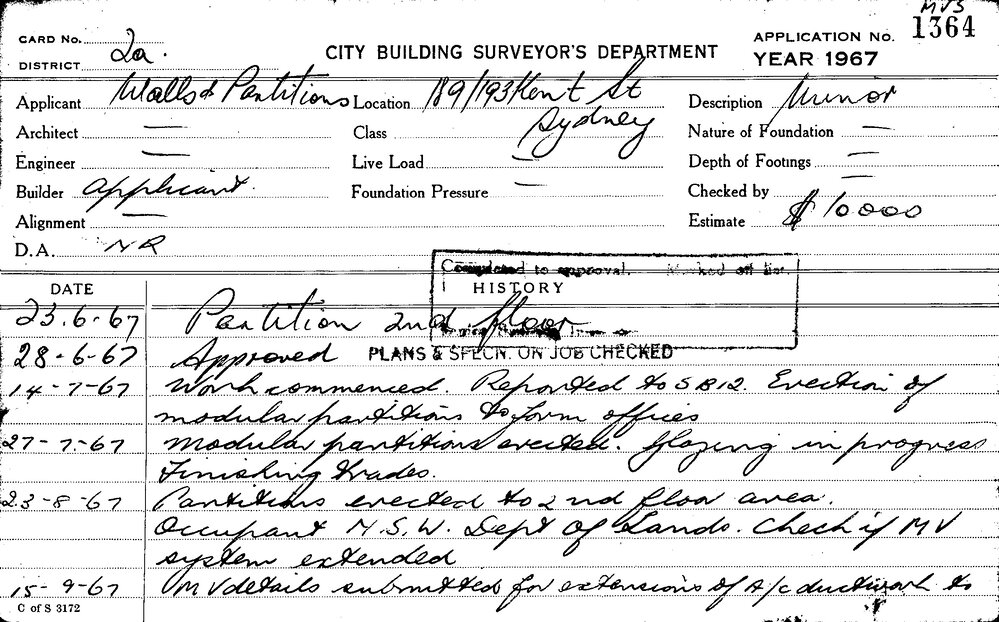 MVS
CARD No. 2a. CITY BUILDING SURVEYOR'S DEPARTMENT APPLICATION No. 1364
DISTRICT YEAR 1967
Applicant Walls & Partitions Location 189/193 Kent St Description Minor
Architect — Class Sydney Nature of Foundation —
Engineer — Live Load — Depth of Footings —
Builder Applicant. Foundation Pressure — Checked by —
Alignment — Estimate $10000
D.A. NR
Completed to approval. Marked off list.
DATE HISTORY
23.6-67 Partition 2nd floor
28-6-67 Approved PLANS & SPECN. ON JOB CHECKED
14-7-67 Work commenced. Reported to SB12. Erection of
modular partitions to form offices
27-7-67 Modular partitions erected. Glazing in progress
Finishing trades.
23-8-67 Partitions erected to 2nd floor area.
Occupant N.S.W. Dept of Lands. Check if MV
system extended
15-9-67 MV details submitted for extensions of A/c ductwork to
C of S 3172